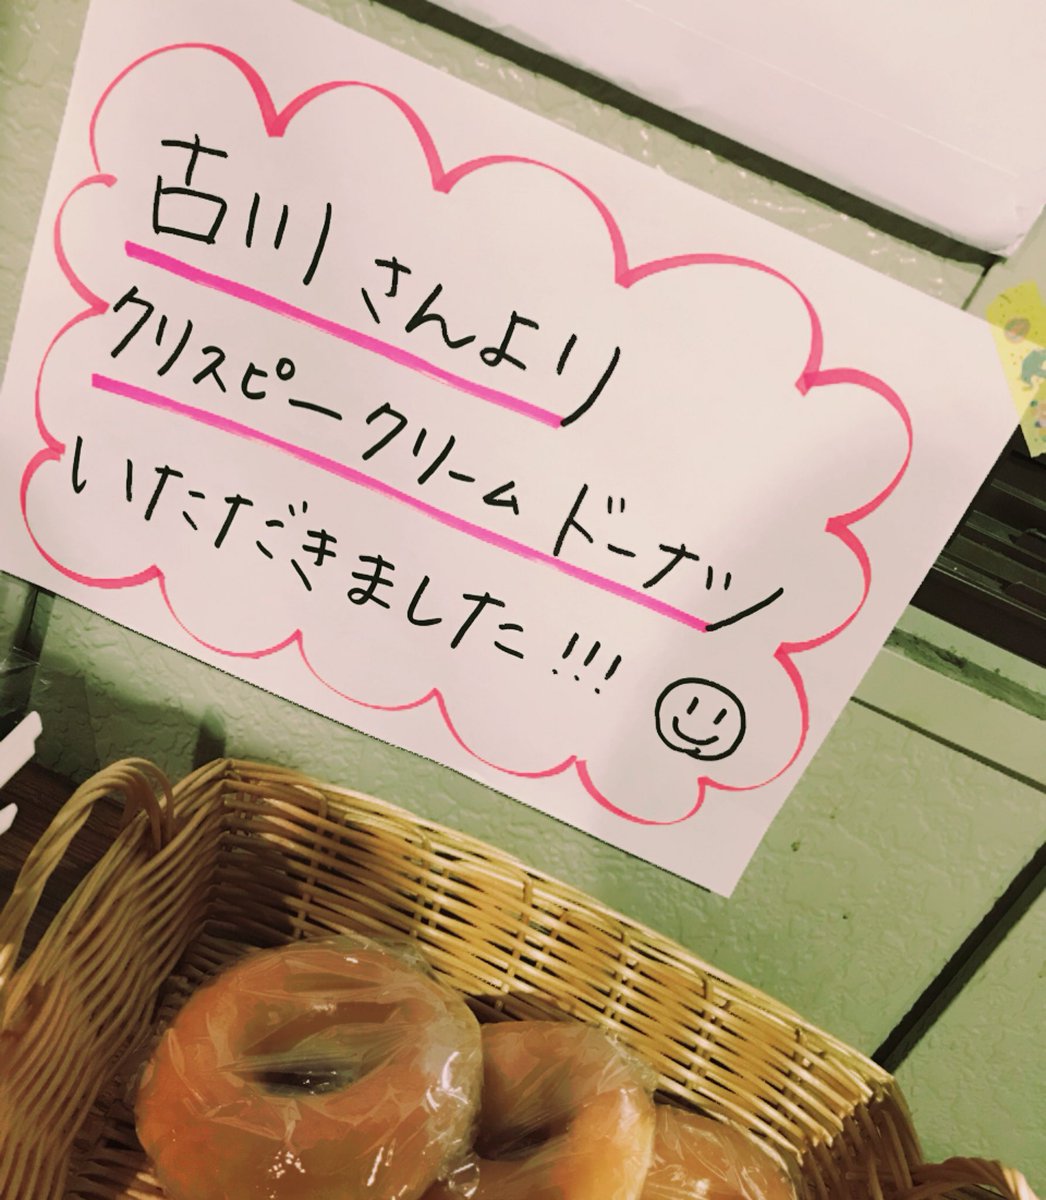 古川さんより
クリスピークリームドーナツ
いただきました!!!